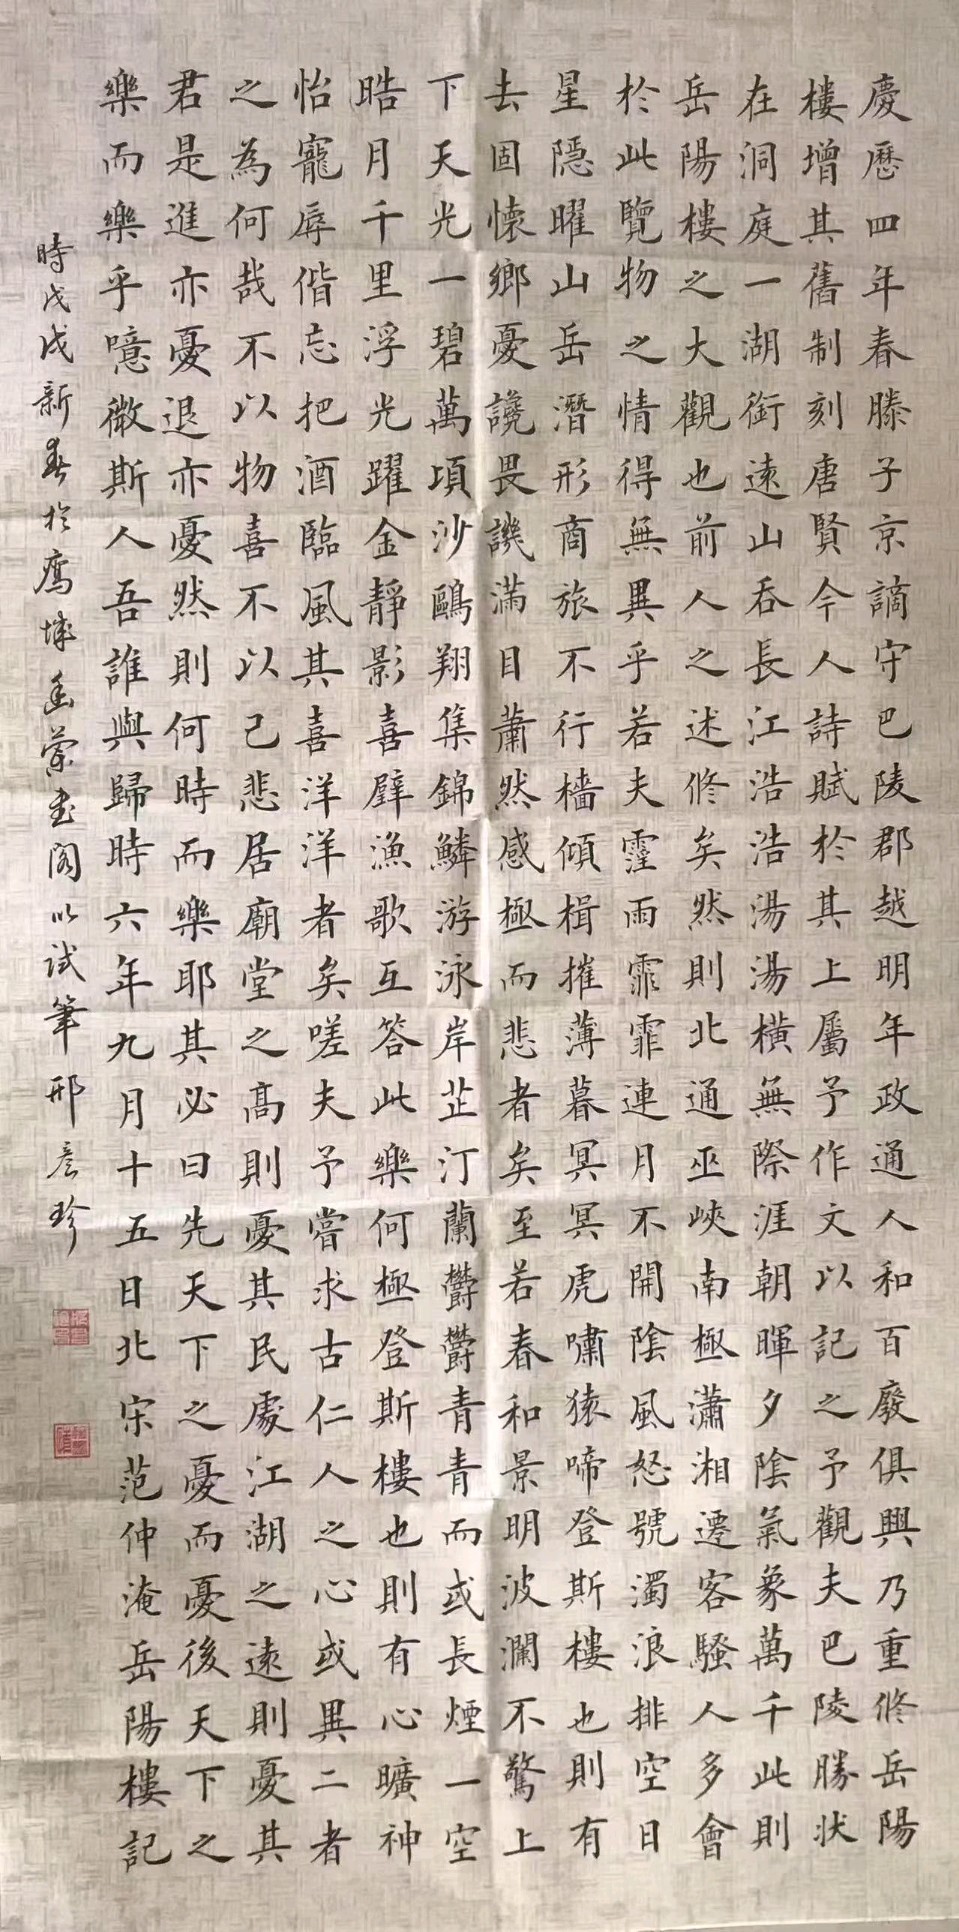 慶歷四年春滕子京謫守巴陵郡越明年政通人和百廢俱興乃重修岳陽
樓增其舊制刻唐賢今人詩賦於其上屬予作文以記之予觀夫巴陵勝狀
在洞庭一湖銜遠山吞長江浩浩湯湯橫無際涯朝暉夕陰氣象萬千此則
岳陽樓之大觀也前人之述修矣然則北通巫峽南極瀟湘遷客騷人多會
於此覽物之情得無異乎若夫霪雨霏霏連月不開陰風怒號濁浪排空日
星隱曜山岳潛形商旅不行檣傾楫摧薄暮冥冥虎嘯猿啼登斯樓也則有
去固懷鄉憂讒畏譏滿目蕭然感極而悲者矣至若春和景明波瀾不驚上
下天光一碧萬頃沙鷗翔集錦鱗游泳岸芷汀蘭鬱鬱青青而或長煙一空
皓月千里浮光躍金靜影喜壁漁歌互答此樂何極登斯樓也則有心曠神
怡寵辱偕忘把酒臨風其喜洋洋者矣嗟夫予嘗求古仁人之心或異二者
之為何哉不以物喜不以己悲居廟堂之高則憂其民處江湖之遠則憂其
君是進亦憂退亦憂然則何時而樂耶其必曰先天下之憂而憂後天下之
樂而樂乎噫微斯人吾誰與歸時六年九月十五日北宋范仲淹岳陽樓記
時戊戌新春於鷹城幽蘭書閣以試筆邢彥珍